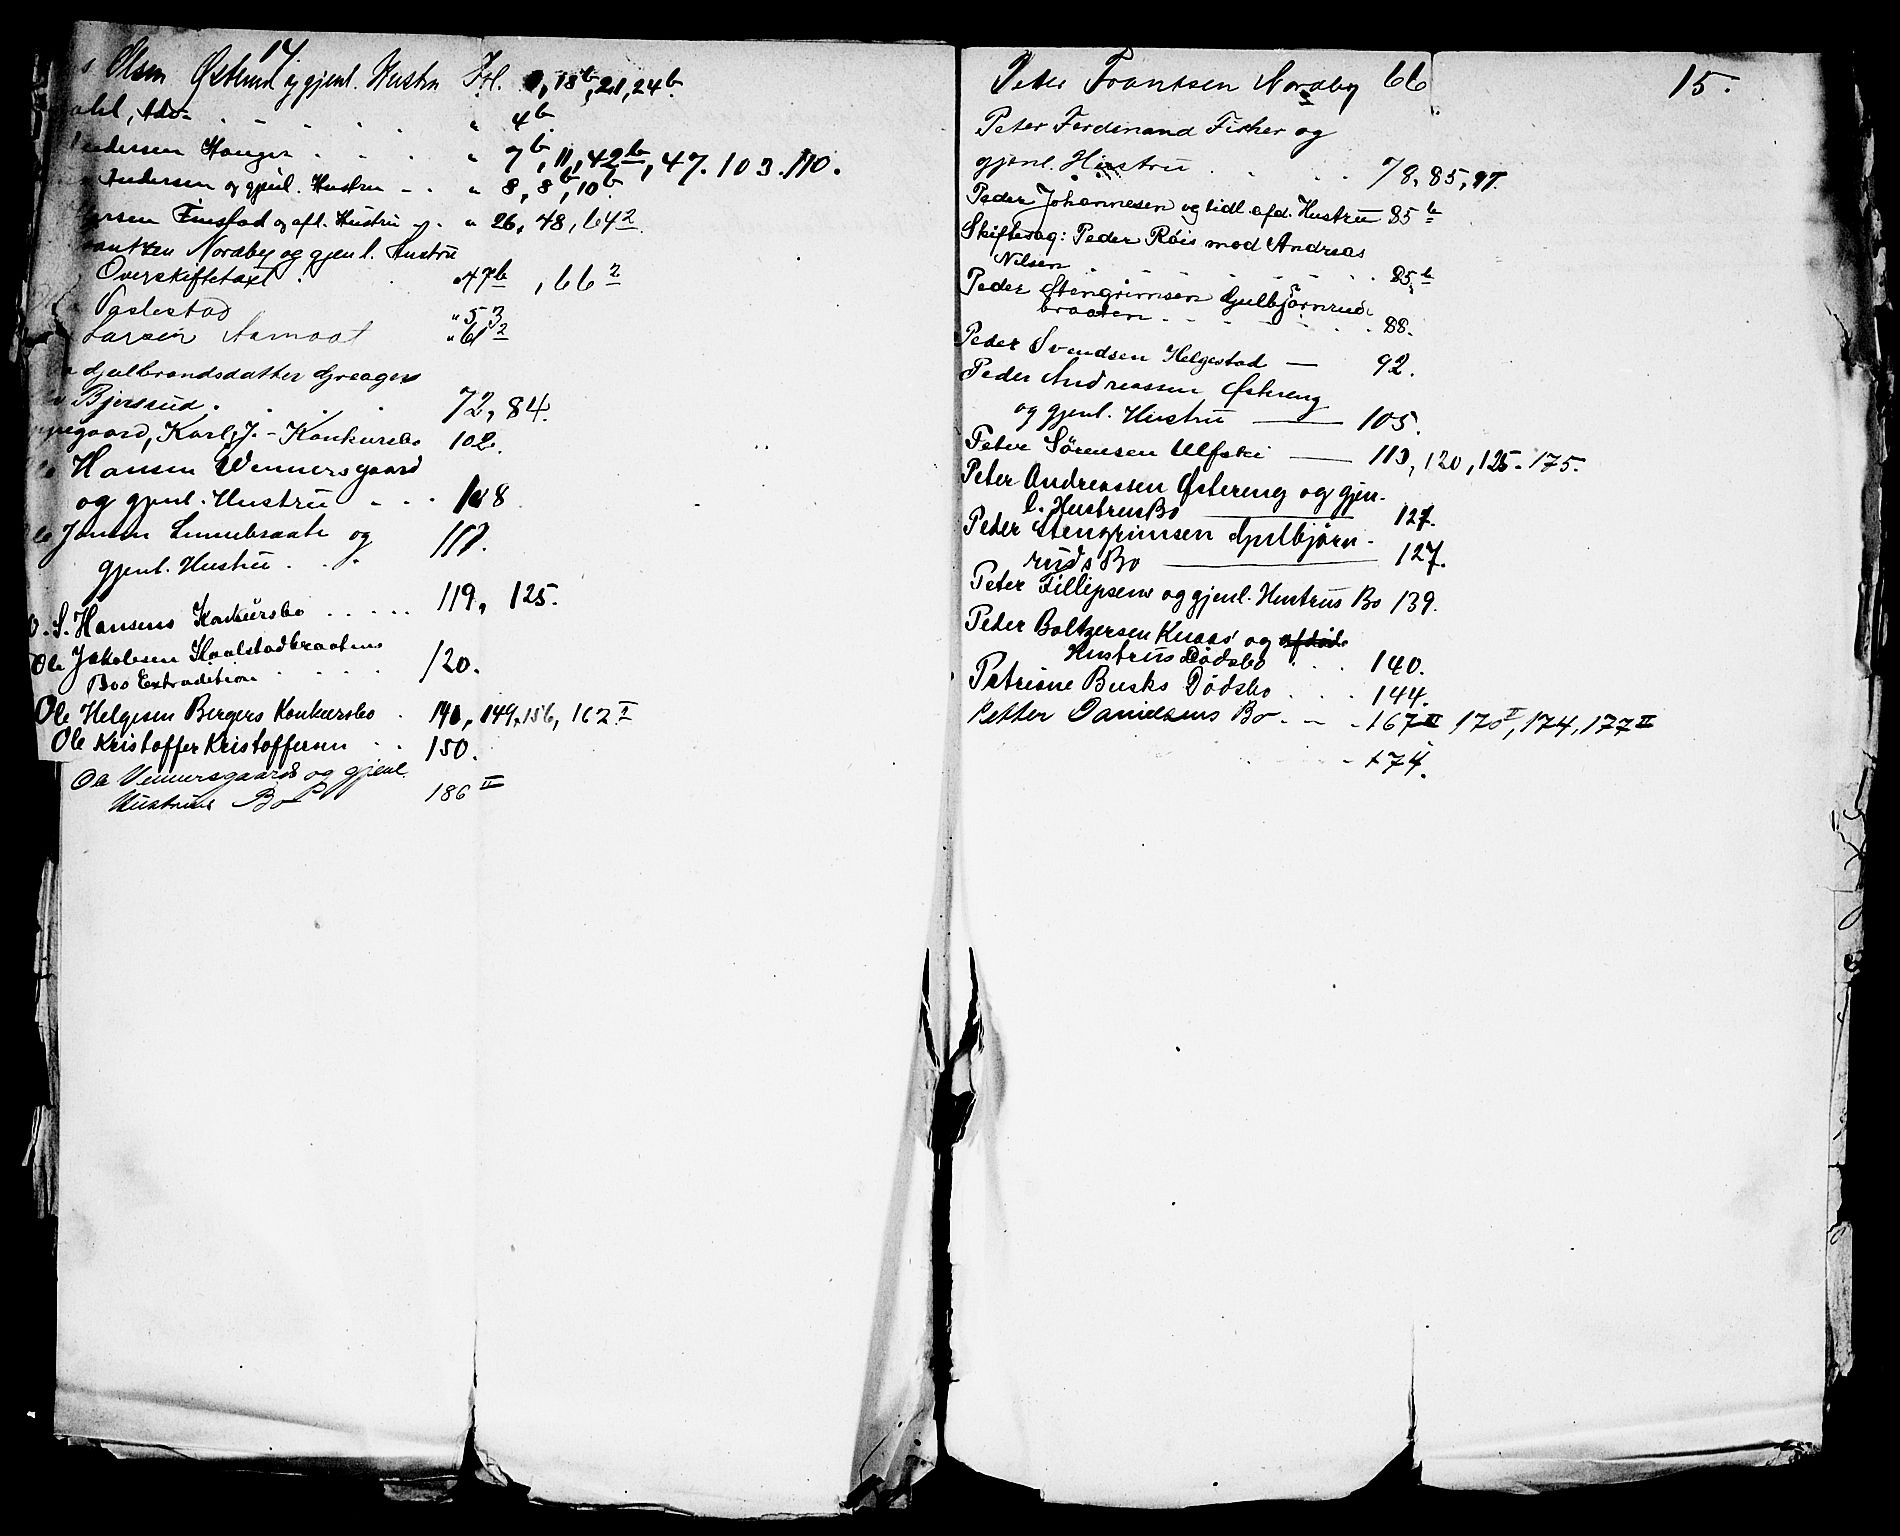 14
Olsen Østlund og gjenl. Hustru Fol. 1, 18b, 21, 24b
dahl, Adv. " 4b
Andersen Hauger " 7b, 11, 42b, 47. 103. 110.
Andersen og gjenl. Hustru " 8, 8b, 10b
Finstad og afl. Hustru " 26, 48, 642
Frantzen Nordby og gjenl. Hustru
Overskiftetaxt " 47b, 662
Vastestad " 53
Larsen Aamoot " 612
Gulbrandsdatter Greager
Bjersrud. 72, 84.
gaard, Karl J. - Konkursbo 102.
Ole Hansen Wennersgaard
og gjenl. Hustru 108
Ole Jansen Linnebraate og
gjenl. Hustru 117.
O. S. Hansens Konkursbo 119, 125.
Ole Jakobsen Haalstadbraatens
Bos Extradition 120.
Ole Helgesen Bergers Konkursbo 141, 149, 156, 162 I
Ole Kristoffer Kristoffersen 150.
Ole Vennersgaards og gjenl.
Hustrus Bo 186 II
15.
Peter Frantsen Nordby 66
Peter Ferdinand Fisher og
gjenl. Hustru 78, 85, 97.
Peder Johannesen og tidl. afd. Hustru 85b
Skiftesag: Peder Röis mod Andreas
Nilsen 85b
Peder Stengrimsen Gulbjørnrud-
braaten 88.
Peder Svendsen Helgestad — 92.
Peder Andreassen Østreng
og gjenl. Hustru — 105.
Peter Sørensen Ulfski — 113, 120, 125. 175.
Peter Andreassen Østereng og gjen-
l. Hustrus Bo — 127.
Peder Stengrimsen Gulbjørn-
ruds Bo — 127.
Peter Fillipsens og gjenl. Hustrus Bo 139.
Peder Boltzersen Knaas' og afdøde
Hustrus Dødsbo 140.
Petrine Busks Dødsbo 144.
Petter Danielsens Bo 167 II 170 II, 174, 177 II
174.